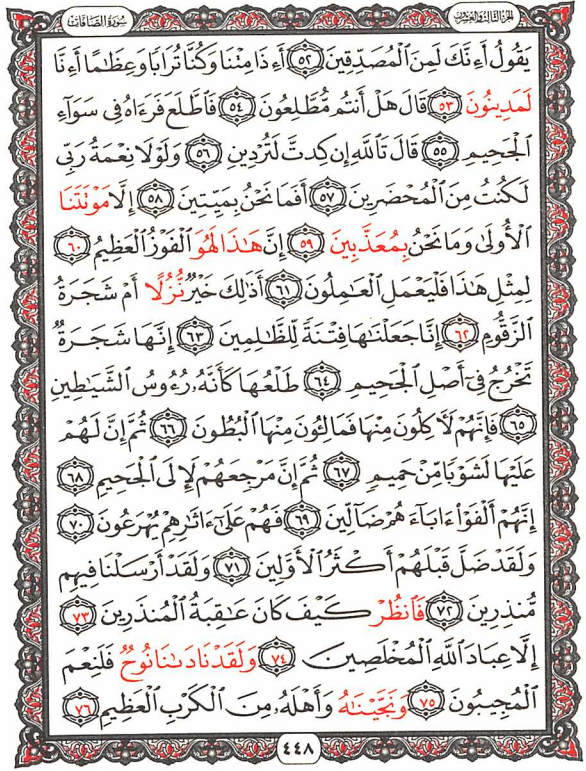 سورة الصافات
الجزء الثالث والعشرون
يَقُولُ أَءِنَّكَ لَمِنَ الْمُصَدِّقِينَ ۝٥٢ أَءِذَا مِتْنَا وَكُنَّا تُرَابًا وَعِظَٰمًا أَءِنَّا
لَمَدِينُونَ ۝٥٣ قَالَ هَلْ أَنتُم مُّطَّلِعُونَ ۝٥٤ فَاطَّلَعَ فَرَءَاهُ فِي سَوَآءِ
الْجَحِيمِ ۝٥٥ قَالَ تَاللَّهِ إِن كِدتَّ لَتُرْدِينِ ۝٥٦ وَلَوْلَا نِعْمَةُ رَبِّي
لَكُنتُ مِنَ الْمُحْضَرِينَ ۝٥٧ أَفَمَا نَحْنُ بِمَيِّتِينَ ۝٥٨ إِلَّا مَوْتَتَنَا
الْأُولَىٰ وَمَا نَحْنُ بِمُعَذَّبِينَ ۝٥٩ إِنَّ هَٰذَا لَهُوَ الْفَوْزُ الْعَظِيمُ ۝٦٠
لِمِثْلِ هَٰذَا فَلْيَعْمَلِ الْعَٰمِلُونَ ۝٦١ أَذَٰلِكَ خَيْرٌ نُّزُلًا أَمْ شَجَرَةُ
الزَّقُّومِ ۝٦٢ إِنَّا جَعَلْنَٰهَا فِتْنَةً لِّلظَّٰلِمِينَ ۝٦٣ إِنَّهَا شَجَرَةٌ
تَخْرُجُ فِي أَصْلِ الْجَحِيمِ ۝٦٤ طَلْعُهَا كَأَنَّهُۥ رُءُوسُ الشَّيَٰطِينِ
۝٦٥ فَإِنَّهُمْ لَءَاكِلُونَ مِنْهَا فَمَالِـُٔونَ مِنْهَا الْبُطُونَ ۝٦٦ ثُمَّ إِنَّ لَهُمْ
عَلَيْهَا لَشَوْبًا مِّنْ حَمِيمٍ ۝٦٧ ثُمَّ إِنَّ مَرْجِعَهُمْ لَإِلَى الْجَحِيمِ ۝٦٨
إِنَّهُمْ أَلْفَوْا۟ ءَابَآءَهُمْ ضَآلِّينَ ۝٦٩ فَهُمْ عَلَىٰٓ ءَاثَٰرِهِمْ يُهْرَعُونَ ۝٧٠
وَلَقَدْ ضَلَّ قَبْلَهُمْ أَكْثَرُ الْأَوَّلِينَ ۝٧١ وَلَقَدْ أَرْسَلْنَا فِيهِم
مُّنذِرِينَ ۝٧٢ فَانظُرْ كَيْفَ كَانَ عَٰقِبَةُ الْمُنذَرِينَ ۝٧٣
إِلَّا عِبَادَ اللَّهِ الْمُخْلَصِينَ ۝٧٤ وَلَقَدْ نَادَىٰنَا نُوحٌ فَلَنِعْمَ
الْمُجِيبُونَ ۝٧٥ وَنَجَّيْنَٰهُ وَأَهْلَهُۥ مِنَ الْكَرْبِ الْعَظِيمِ ۝٧٦
٤٤٨